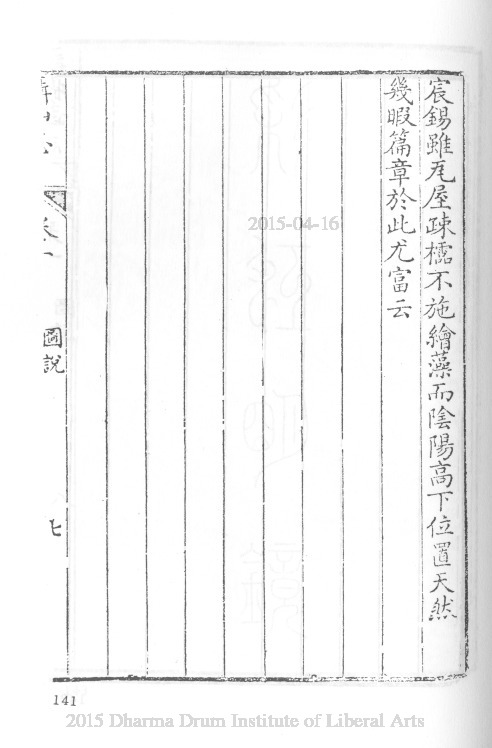 宸錫雖瓦屋疎櫺不施繪藻而陰陽高下位置天然
幾暇篇章於此尤富云
圖說
七
2015-04-16
141
2015 Dharma Drum Institute of Liberal Arts